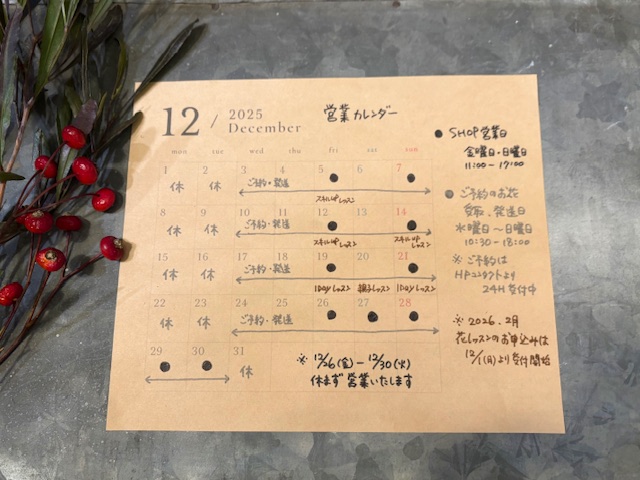 12 / 2025 December 営業カレンダー
mon tue wed thu fri sat sun
1 2 3 4 5 6 7
休 休 ご予約・発送 ● ●
スキルUPレッスン
8 9 10 11 12 13 14
休 休 ご予約・発送 ● ●
スキルUPレッスン スキルUPレッスン
15 16 17 18 19 20 21
休 休 ご予約・発送 ● ●
1DAYレッスン 親子レッスン 1DAYレッスン
22 23 24 25 26 27 28
休 休 ご予約・発送 ● ● ●
29 30 31
● ● 休
※ 12/26(金)－12/30(火)
休まず営業いたします
● SHOP営業日
金曜日・日曜日
11:00～17:00
● ご予約のお花
受取、発送日
水曜日～日曜日
10:30-18:00
※ ご予約は
HPコンタクトより
24H受付中
※ 2026.2月
花レッスンのお申込みは
12/1(月)より受付開始